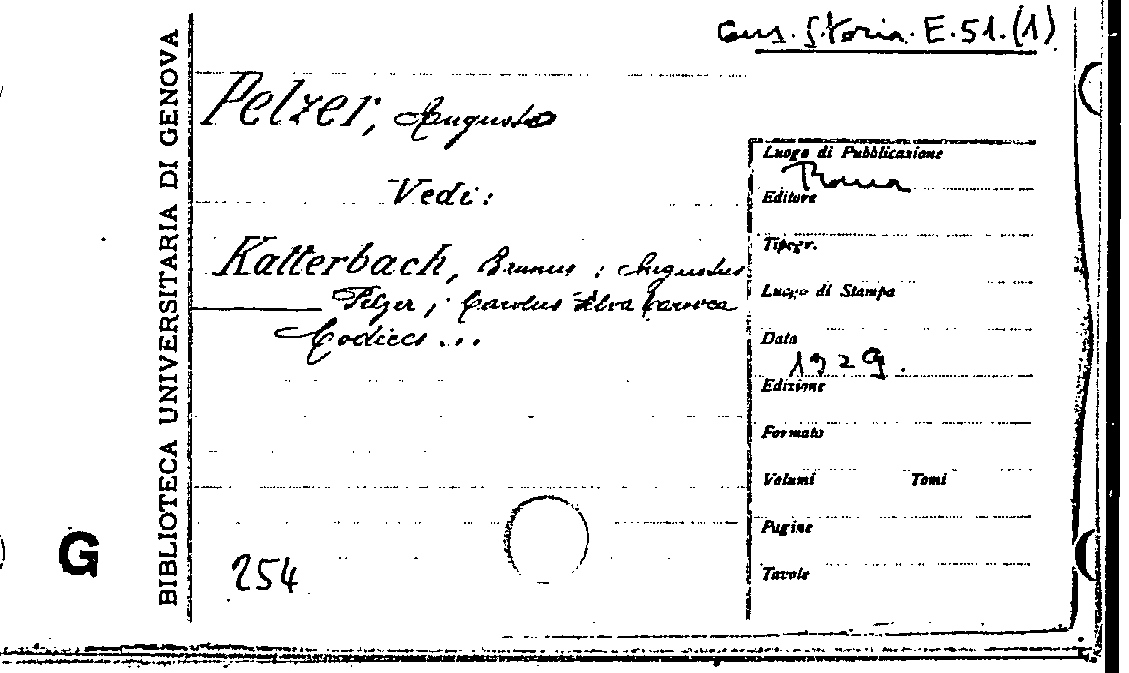 Cons. Storia. E. 51. (1)
BIBLIOTECA UNIVERSITARIA DI GENOVA
Pelzer, Augusto
Vedi:
Katterbach, Brunus ; Augustus
Pelzer ; Carolus Silva Tarouca
Codices ...
254
G
Luogo di Pubblicazione
Roma
Editore
Tipogr.
Luogo di Stampa
Data
1929.
Edizione
Formato
Volumi Tomi
Pagine
Tavole